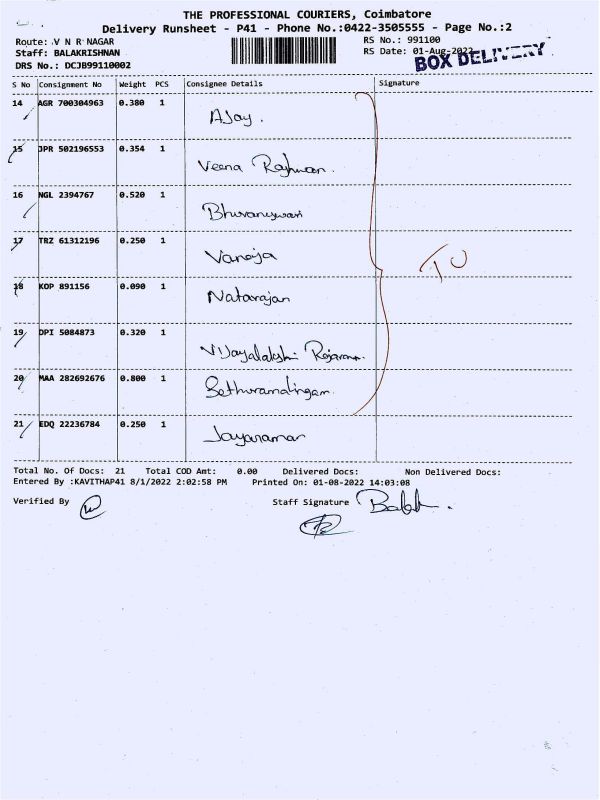 THE PROFESSIONAL COURIERS, Coimbatore
Delivery Runsheet - P41 - Phone No.:0422-3505555 - Page No.:2
Route: V N R NAGAR RS No.: 991100
Staff: BALAKRISHNAN RS Date: 01-Aug-2022
BOX DELIVERY
DRS No.: DCJB99110002
S No Consignment No Weight PCS Consignee Details Signature
14 AGR 700304963 0.380 1 Ajay.
15 JPR 502196553 0.354 1 Veena
16 NGL 2394767 0.520 1 Bhuvaneswari
17 TRZ 61312196 0.250 1 Vanaja
TU
18 KOP 891156 0.090 1 Natarajan
19 DPI 5084873 0.320 1 Vijayalakshi Rajaram.
20 MAA 282692676 0.800 1 Sethuramalingam
21 EDQ 22236784 0.250 1 Jayaraman
Total No. Of Docs: 21 Total COD Amt: 0.00 Delivered Docs: Non Delivered Docs:
Entered By :KAVITHAP41 8/1/2022 2:02:58 PM Printed On: 01-08-2022 14:03:08
Verified By Staff Signature